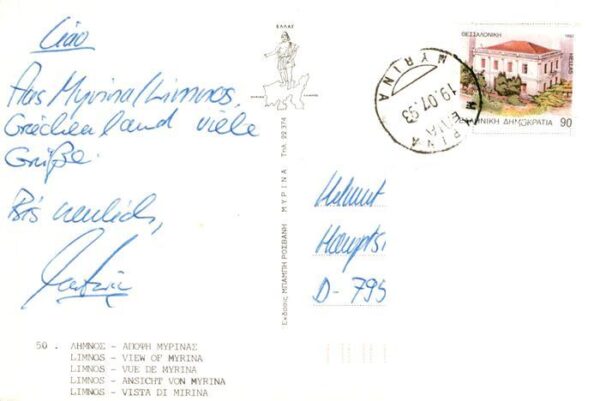 Ciao
Aus Myrina/Limnos,
Griechenland viele
Grüße.
Bis neulich,
ΕΛΛΑΣ
Εκδοσεις ΜΠΑΜΠΗ ΡΟΣΒΑΝΗ ΜΥΡΙΝΑ Τηλ. 22374
ΘΕΣΣΑΛΟΝΙΚΗ 1992
HELLAS
ΕΛΛΗΝΙΚΗ ΔΗΜΟΚΡΑΤΙΑ 90
MYRINA
19.07.93
ΜΥΡΙΝΑ
Helmut
Hauptst
D-795
50. ΛΗΜΝΟΣ - ΑΠΟΨΗ ΜΥΡΙΝΑΣ
LIMNOS - VIEW OF MYRINA
LIMNOS - VUE DE MYRINA
LIMNOS - ANSICHT VON MYRINA
LIMNOS - VISTA DI MIRINA